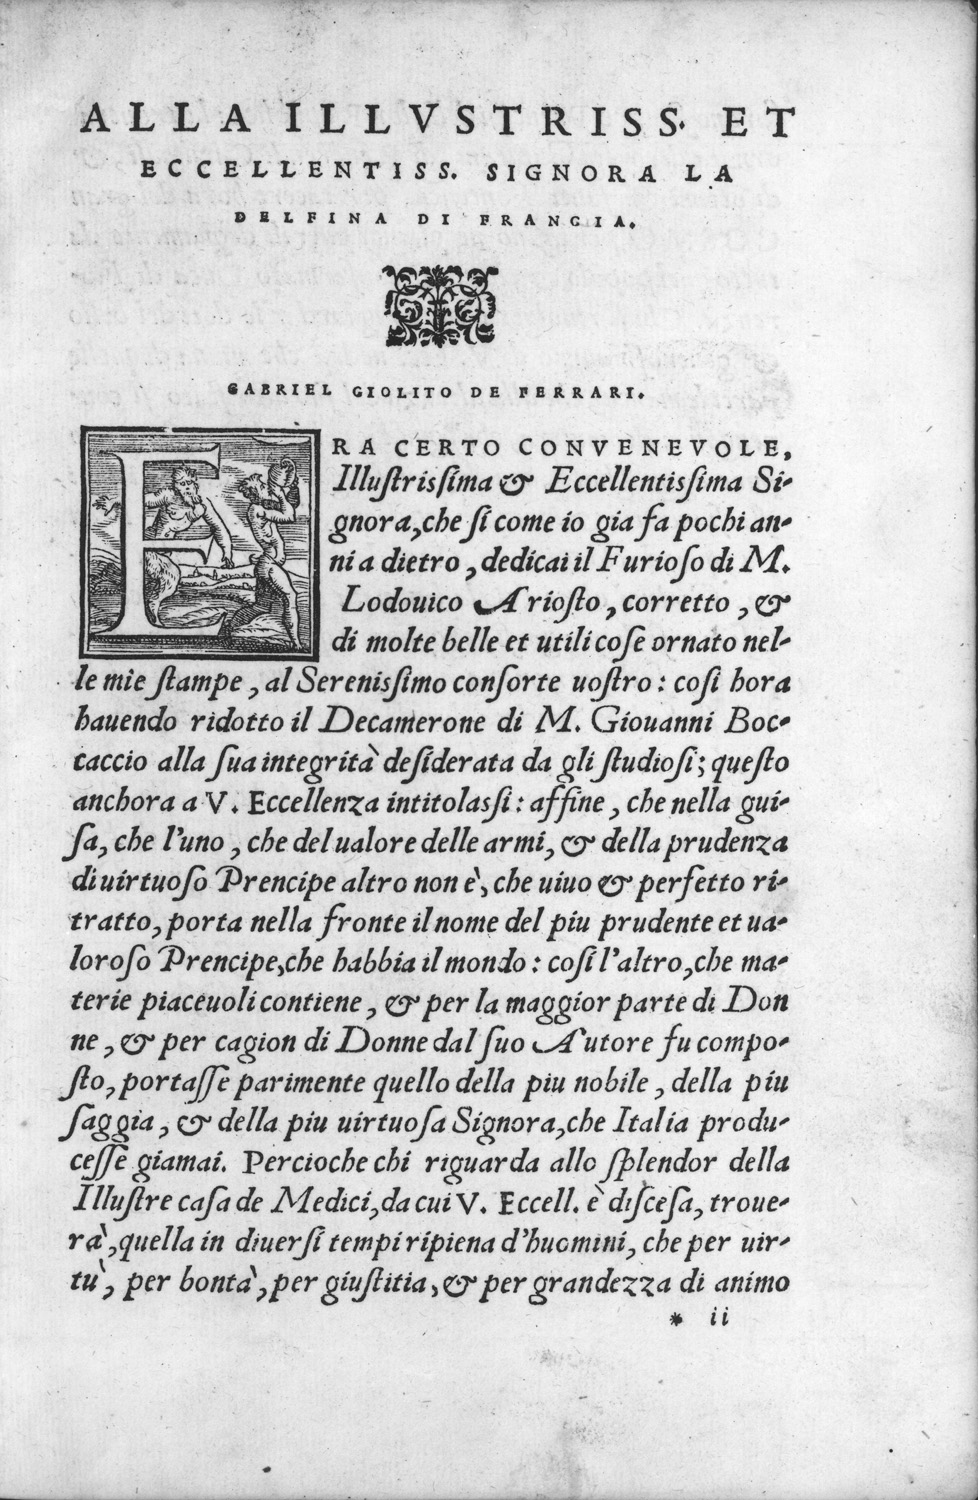 ALLA ILLVSTRISS. ET
ECCELLENTISS. SIGNORA LA
DELFINA DI FRANCIA.
GABRIEL GIOLITO DE FERRARI.
ERA CERTO CONVENEVOLE,
Illuſtrisſima & Eccellentisſima Si-
gnora, che ſi come io gia fa pochi an-
ni a dietro, dedicai il Furioſo di M.
Lodouico Arioſto, corretto, &
di molte belle et utili coſe ornato nel-
le mie ſtampe, al Serenisſimo conſorte uoſtro: coſi hora
hauendo ridotto il Decamerone di M. Giouanni Boc-
caccio alla ſua integrità deſiderata da gli ſtudioſi; queſto
anchora a V. Eccellenza intitolasſi: affine, che nella gui-
ſa, che l'uno, che del ualore delle armi, & della prudenza
di uirtuoſo Prencipe altro non è, che uiuo & perfetto ri-
tratto, porta nella fronte il nome del piu prudente et ua-
loroſo Prencipe, che habbia il mondo: coſi l'altro, che ma-
terie piaceuoli contiene, & per la maggior parte di Don
ne, & per cagion di Donne dal ſuo Autore fu compo-
ſto, portaſſe parimente quello della piu nobile, della piu
ſaggia, & della piu uirtuoſa Signora, che Italia produ-
ceſſe giamai. Percioche chi riguarda allo ſplendor della
Illuſtre caſa de Medici, da cui V. Eccell. è diſceſa, troue-
rà, quella in diuerſi tempi ripiena d'huomini, che per uir-
tù, per bontà, per giuſtitia, & per grandezza di animo
* ii